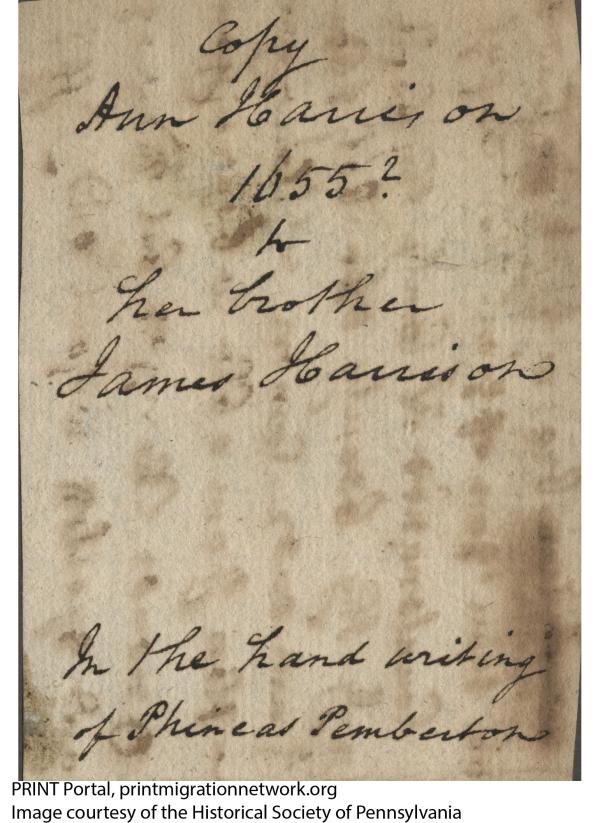 Copy
Ann Harrison
1655?
to
her brother
James Harrison
In the hand writing
of Phineas Pemberton
PRINT Portal, printmigrationnetwork.org
Image courtesy of the Historical Society of Pennsylvania